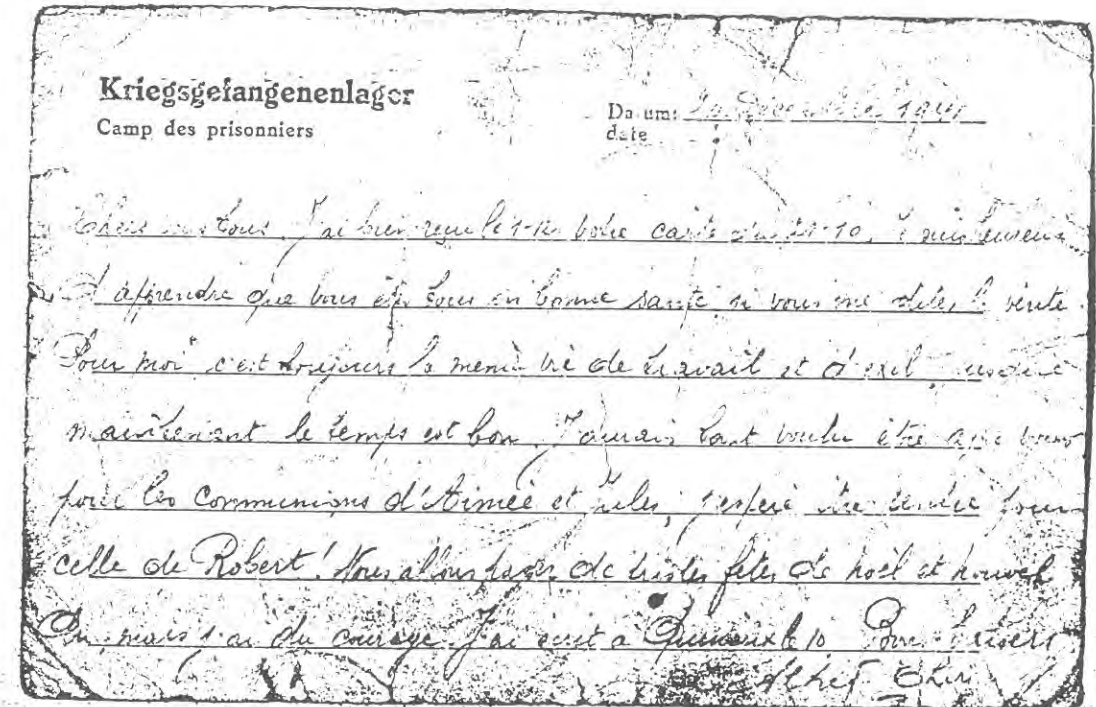 Kriegsgefangenenlager
Camp des prisonniers
Datum:
date
Décembre 194
Chers tous. J'ai bien reçu le 1-12 votre carte du 21-10, suis heureux
d'apprendre que vous êtes tous en bonne santé si vous me dites la vérité
Pour moi c'est toujours la même vie de travail et d'exil
maintenant le temps est bon. J'aurais tant voulu être avec vous
pour les communions d'Aimée et Jules, j'espère être rentré pour
celle de Robert! Nous allons passer de tristes fêtes de noël et nouvel
An, mais j'ai du courage. J'ai écrit à le 10. Bons baisers
Albert